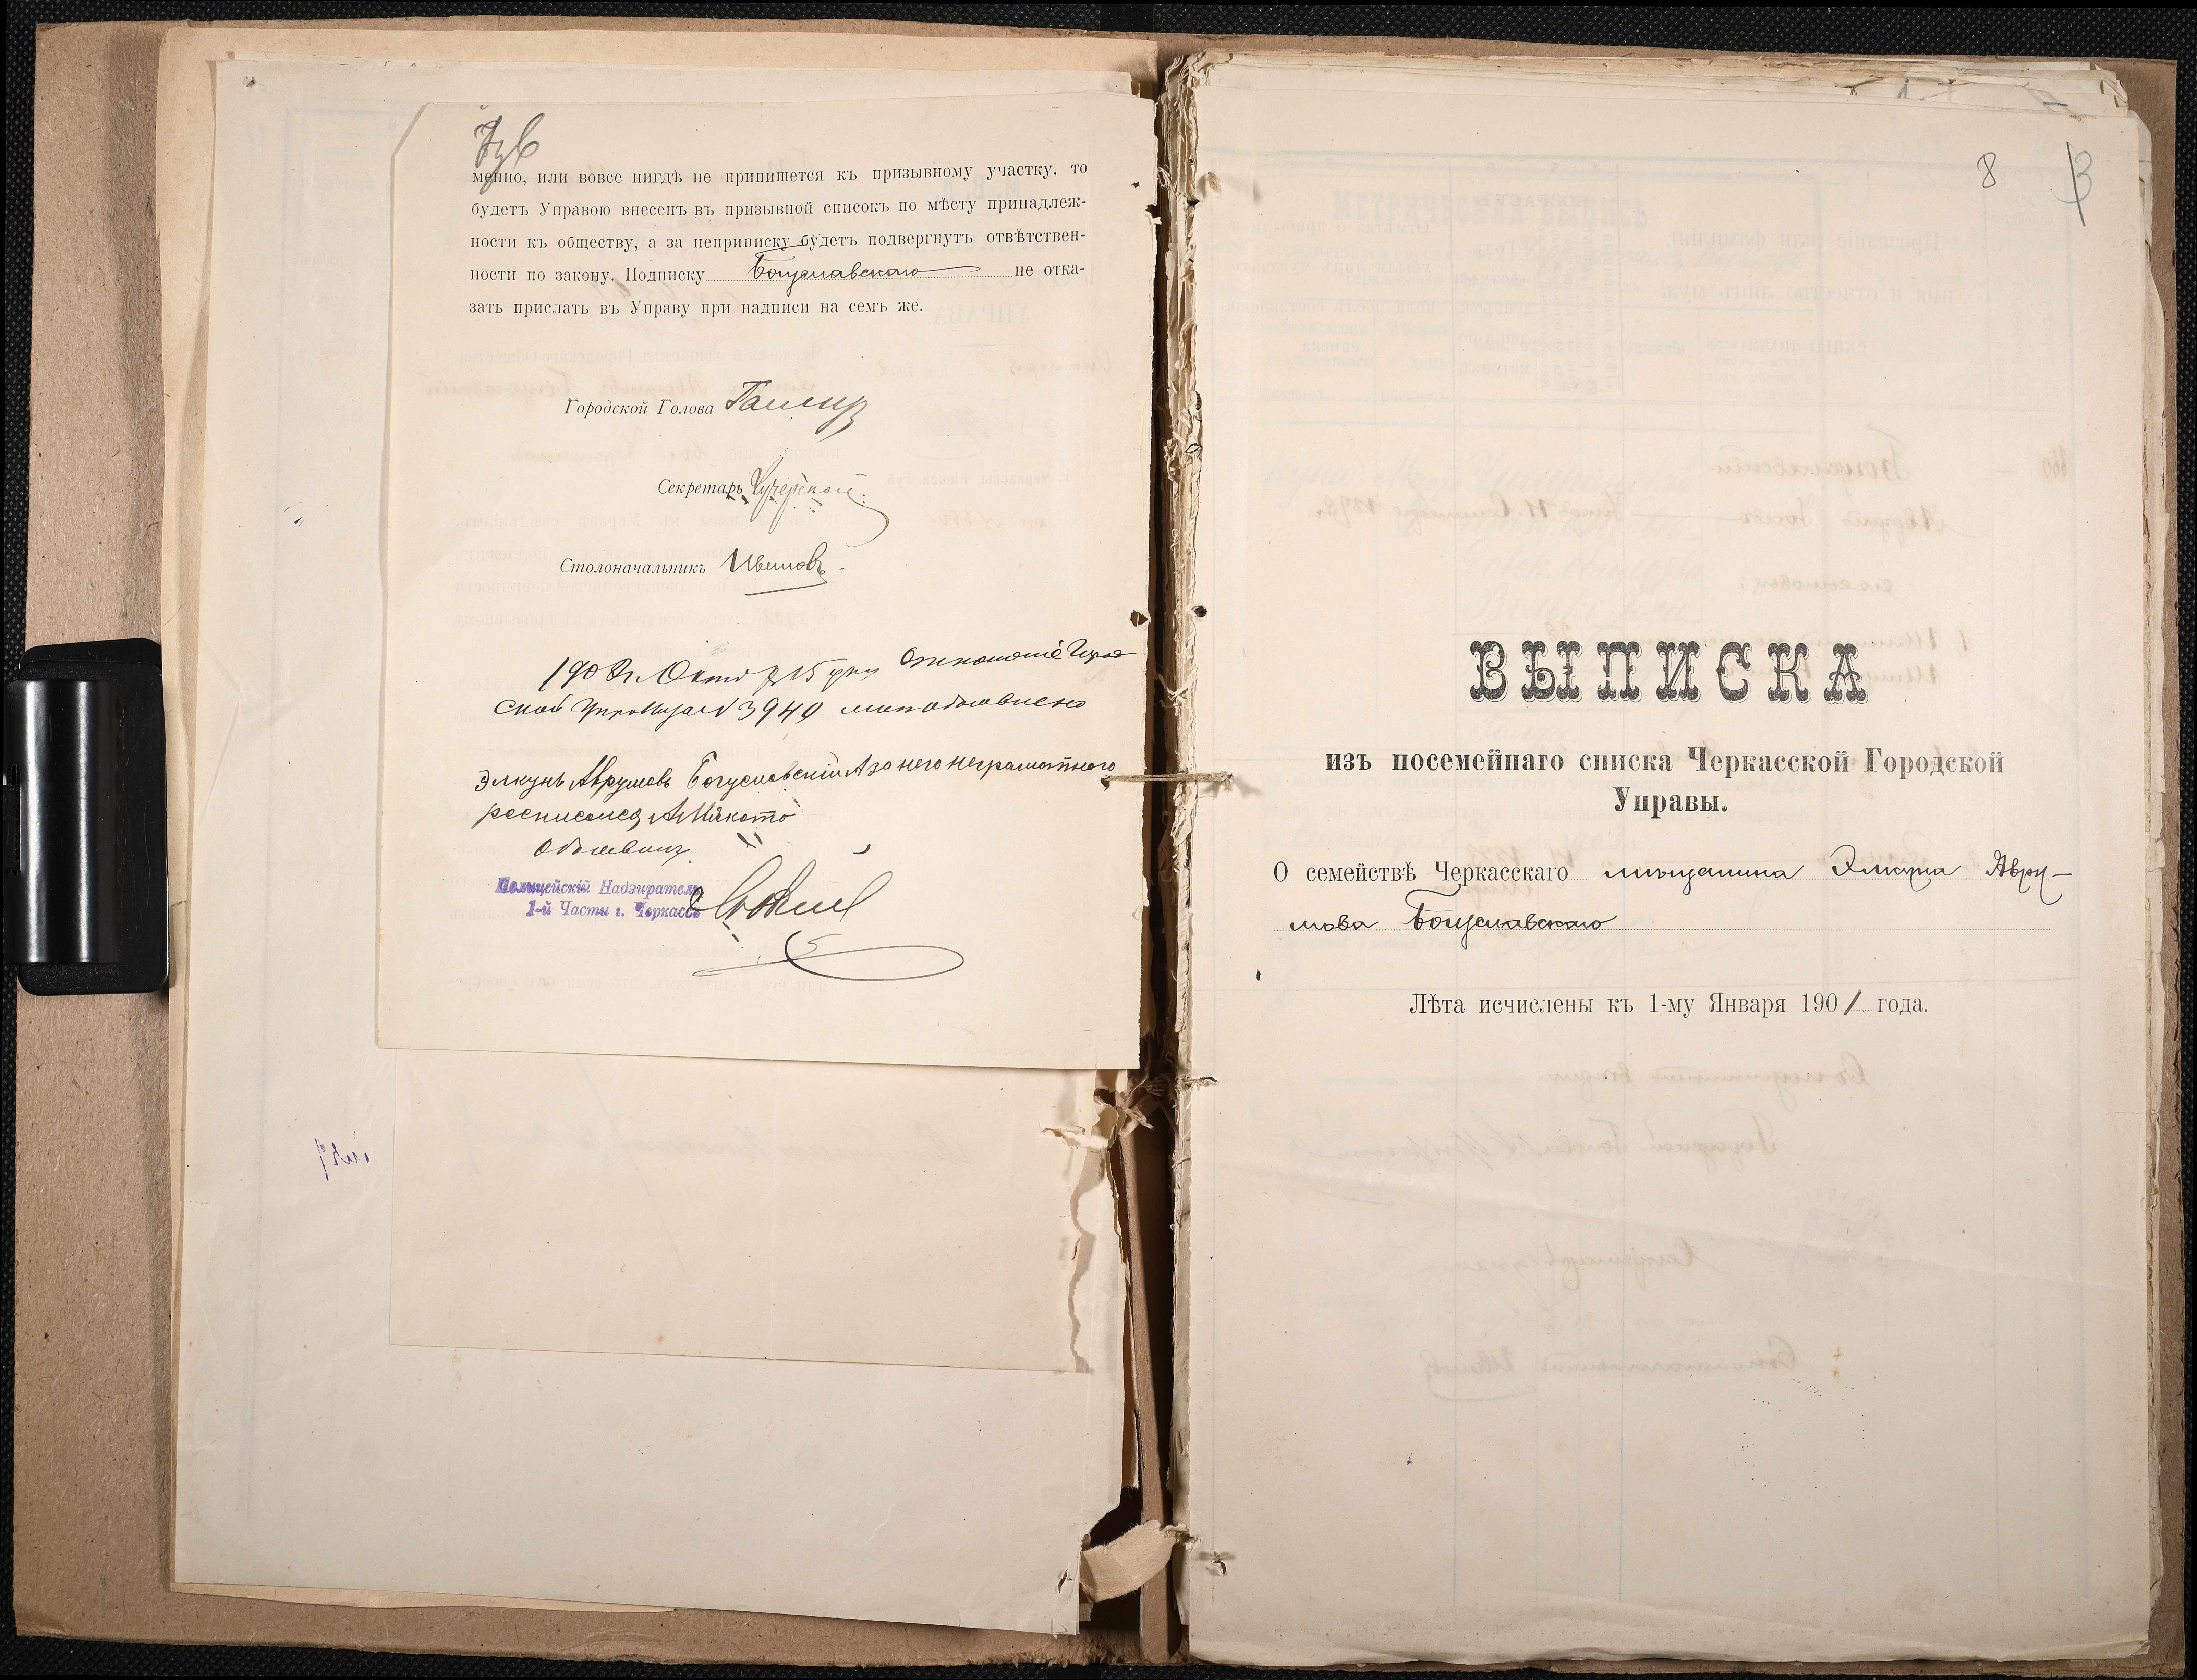 7об
менно, или вовсе нигдѣ не припишется къ призывному участку, то
будетъ Управою внесенъ въ призывной списокъ по мѣсту принадлеж-
ности къ обществу, а за неприписку будетъ подвергнутъ отвѣтствен-
ности по закону. Подписку Богуславскаго не отка-
зать прислать въ Управу при надписи на семъ же.
Городской Голова
Секретарь
Столоначальникъ Ивановъ.
190 г. Октяб 15 дня Отношеніе
ской Управы за N 3940 мнѣ объявлено
Элкунъ Аврумовъ Богуславскій А за него неграмотнаго
росписался
Объявилъ
Полицейскій Надзиратель
1-й Части г. Черкассъ
8 3
ВЫПИСКА
изъ посемейнаго списка Черкасской Городской
Управы.
О семействѣ Черкасскаго мѣщанина Элкуна Авру-
мова Богуславскаго
Лѣта исчислены къ 1-му Января 1901 года.